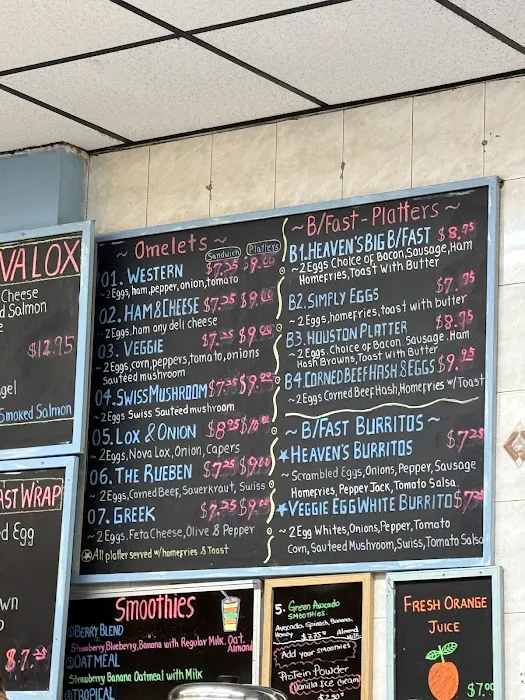 VA LOX
Cheese
d Salmon
$12.95
gel
Smoked Salmon
AST WRAP
ed Egg
wn
p
$7.25
~ Omelets ~
Sandwich Platters
01. WESTERN $7.25 $9.00
~2Eggs, ham, pepper, onion, tomato
02. HAM & CHEESE $7.25 $9.00
~2Eggs. ham any deli cheese
03. VEGGIE $7.25 $9.00
~2Eggs, corn, peppers, tomato, onions
Sauteed mushroom
04. SWISS MUSHROOM $7.25 $9.00
~2Eggs Swiss Sauteed mushroom
05. LOX & ONION $8.25
~2Eggs, Nova Lox, Onion, Capers
06. THE RUEBEN $7.25 $9.00
~2Eggs, Corned Beef, Sauerkraut, Swiss
07. GREEK $7.25 $9.00
~2Eggs. Feta Cheese, Olive & Pepper
All platter served w/homefries & Toast
~ B/Fast-Platters ~
B1. HEAVEN'S BIG B/FAST $8.95
~2Eggs Choice of Bacon, Sausage, Ham
Homefries, Toast With Butter
B2. SIMPLY EGGS $7.95
~2Eggs, homefries, toast with butter
B3. HOUSTON PLATTER $8.95
~2Eggs. Choice of Bacon. Sausage. Ham
Hash Browns, Toast With Butter
B4. CORNED BEEF HASH & EGGS $9.95
~2Eggs Corned Beef Hash, Homefries w/ Toast
~ B/FAST BURRITOS ~
HEAVEN'S BURRITOS $7.25
~ Scrambled Eggs, Onions, Pepper, Sausage
Homefries, Pepper Jack, Tomato Salsa
VEGGIE EGG WHITE BURRITO $7.25
~2Egg Whites, Onion, Pepper, Tomato
Corn, Sauteed Mushroom, Swiss, Tomato Salsa
Smoothies
BERRY BLEND
Strawberry, Blueberry, Banana with Regular Milk, Oat,
Almond
OATMEAL
Strawberry Banana Oatmeal with Milk
TROPICAL
5. Green Avocado
SMOOTHIES.
Avocado, Spinach, Banana,
Honey $7.75 Almond
Milk
Add your smoothies
Protein Powder
Vanilla Ice Cream
$2.50
FRESH ORANGE
JUICE
$7.00